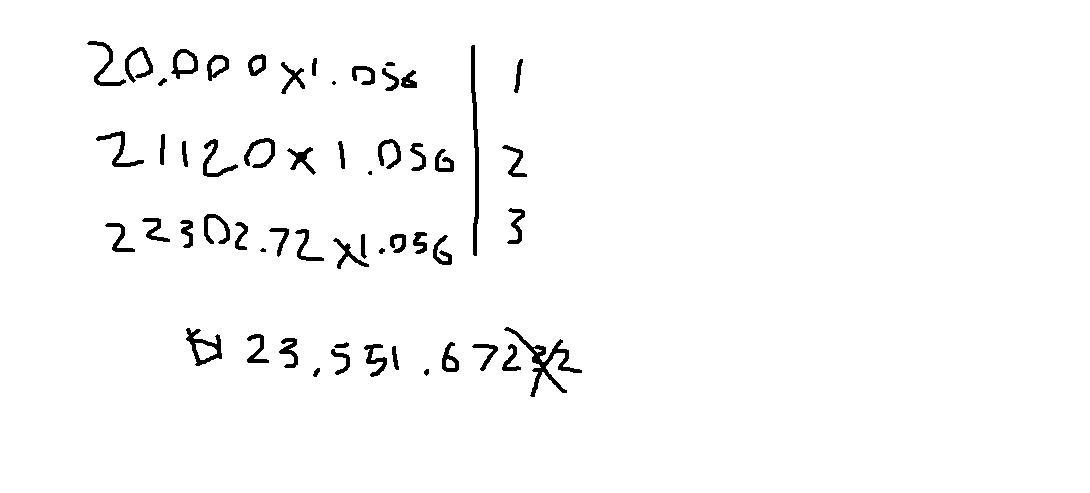 20,000 x 1.056 | 1
21120 x 1.056 | 2
22302.72 x 1.056 | 3
23,551.672